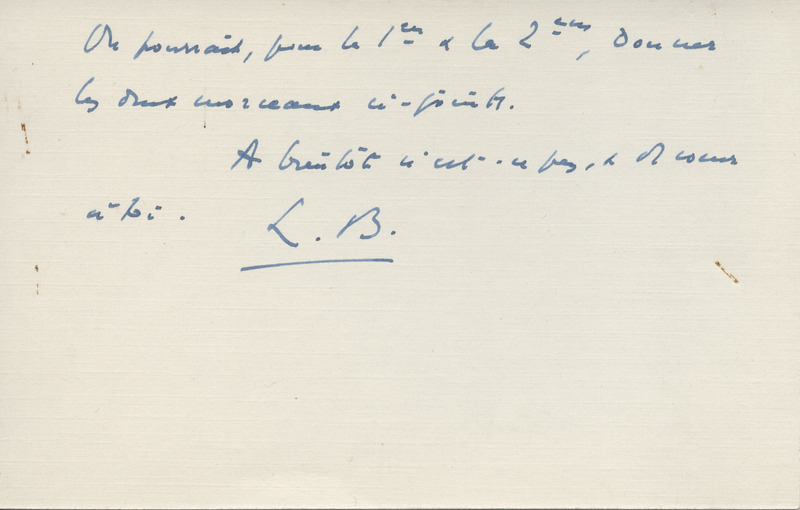 On pourrait, pour la 1ère & la 2ème, donner
les deux morceaux ci-joints.
A bientôt n'est-ce pas, & de coeur
à toi.
L. B.